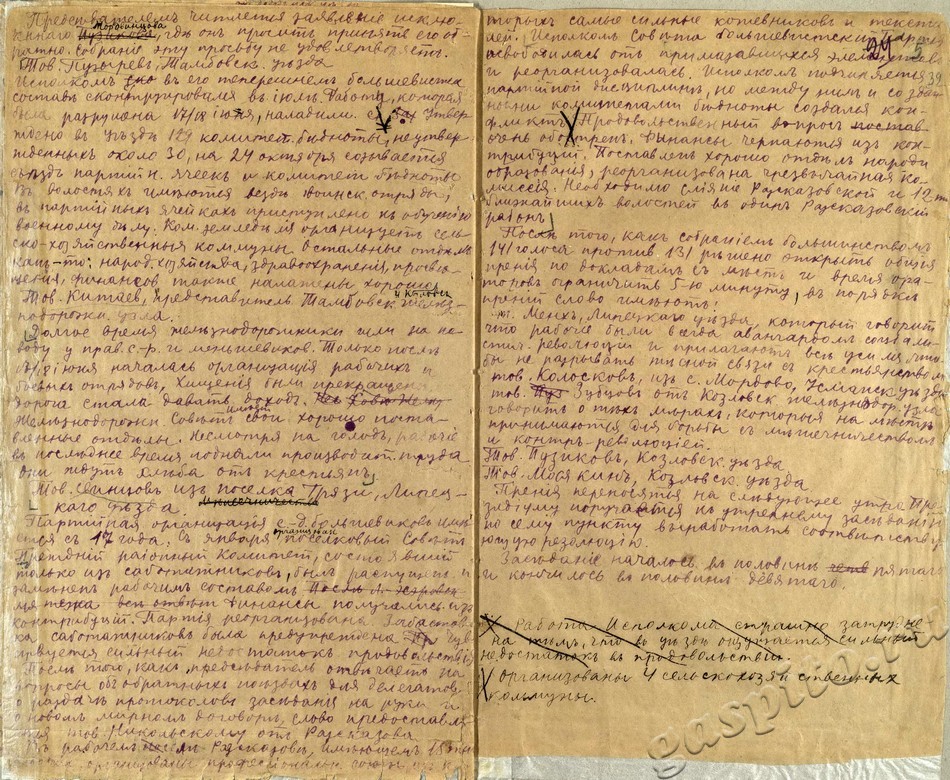 Председателемъ читается заявленіе исклю-
Бородинцова
ченнаго Пузикова, гдѣ онъ проситъ принять его об-
ратно. Собраніе эту просьбу не удовлетворяетъ.
Тов. Пузыревъ, Тамбовск. уѣзда
Исполкомъ въ его теперешнемъ большевистск.
составѣ сконструировался въ іюлѣ. Работа, которая
была разрушена іюня, наладили. утвер-
ждено въ уѣздѣ 129 комитет. бѣдноты, неутвер-
жденныхъ около 30, на 24 октября созывается
съѣздъ партійн. ячеекъ и комитет. бѣдноты
Въ волостяхъ имѣются вездѣ воинск. отряды,
въ партійныхъ ячейкахъ приступлено къ обученію
военному дѣлу. Ком. земледѣлія организуетъ сель-
ско-хозяйственныя коммуны. Остальные отдѣлы
какъ-то: народ. хозяйства, здравоохраненія, просвѣ-
щенія, финансовъ также налажены хорошо.
Тов. Китаевъ, представитель Тамбовск. желѣз-
нодорожн. узла.
Долгое время желѣзнодорожники шли на по-
воду у прав. с.-р. и меньшевиковъ. Только послѣ
іюня началась организація рабочихъ и
боевыхъ отрядовъ, хищенія были прекращены
дорога стала давать доходъ.
Желѣзнодорожн. Совѣтъ имѣетъ свои хорошо поста-
вленные отдѣлы. Несмотря на голодъ, рабочіе
въ послѣднее время подняли производит. труда
они ждутъ хлѣба отъ крестьянъ.
Тов. Свинцовъ изъ поселка Грязи, Липец-
каго уѣзда.
Партійная организація с.-д. большевиковъ имѣ-
ется съ 17 года. Съ января организованъ поселковый Совѣтъ
Прежній районный Комитетъ, состоявшій
только изъ саботажниковъ, былъ распущенъ и
замѣненъ рабочимъ составомъ
Финансы получались изъ
контрибуцій. Партія реорганизована. Забастов-
ка саботажниковъ была предупреждена чув-
ствуется сильный недостатокъ продовольствія
Послѣ того, какъ предсѣдатель отвѣчаетъ на
вопросы объ обратныхъ поѣздахъ для делегатовъ,
о раздачѣ протоколовъ засѣданія на руки и
о новомъ мирномъ договорѣ, слово предоставля-
ется тов. Никольскому отъ Разсказова.
Въ рабочемъ Разсказовѣ, имѣющемъ 15
организованы профессіональн. союзы, изъ ко-
торыхъ самые сильные кожевниковъ и тексти-
лей. Исполкомъ Совѣта большевистскій. Партія
освободилась отъ примазавшихся элементовъ
и реорганизовалась. Исполкомъ подчиняется
партійной дисциплинѣ, но между нимъ и создан-
ными комитетами бѣдноты создался кон-
фликтъ. Продовольственный вопросъ
очень обостренъ. Финансы черпаются изъ кон-
трибуцій. Поставленъ хорошо отдѣлъ народн.
образованія, реорганизована чрезвычайная ко-
миссія. Необходимо сліяніе Разсказовской и 12-ти
ближайшихъ волостей въ одинъ Разсказовскій
районъ.
Послѣ того, какъ собраніемъ большинствомъ
141 голоса противъ 131 рѣшено открыть общія
пренія по докладамъ съ мѣстъ и время ора-
торовъ ограничить 5-ю минуту, въ порядкѣ
преній слово имѣютъ:
тов. Менхъ, Липецкаго уѣзда, который говоритъ,
что рабочіе были всегда авангардомъ соціали-
стич. революціи и прилагаютъ всѣ усилія, что-
бы не разрывать тѣсной связи съ крестьянствомъ,
тов. Колосковъ, изъ с. Мордово, Усманск. уѣзда
тов. Зубцовъ отъ Козловск. желѣзнодор. узла
говоритъ о тѣхъ мѣрахъ, которыя на мѣстѣ
принимаются для борьбы съ мѣшечничествомъ
и контръ-революціей.
Тов. Пузиковъ, Козловск. уѣзда
Тов. Мосякинъ, Козловск. уѣзда
Пренія переносятся на слѣдующее утро. Пре-
зидіуму поручается къ утреннему засѣданію
по сему пункту выработать соотвѣтству-
ющую резолюцію.
Засѣданіе началось въ половинѣ пятаго
и кончилось въ половинѣ девятаго.
Х Работа Исполкома страшно затрудне-
на тѣмъ, что въ уѣздѣ ощущается сильный
недостатокъ въ продовольствіи.
Х Организованы 4 сельскохозяйственныхъ
коммуны.
gaspito.ru